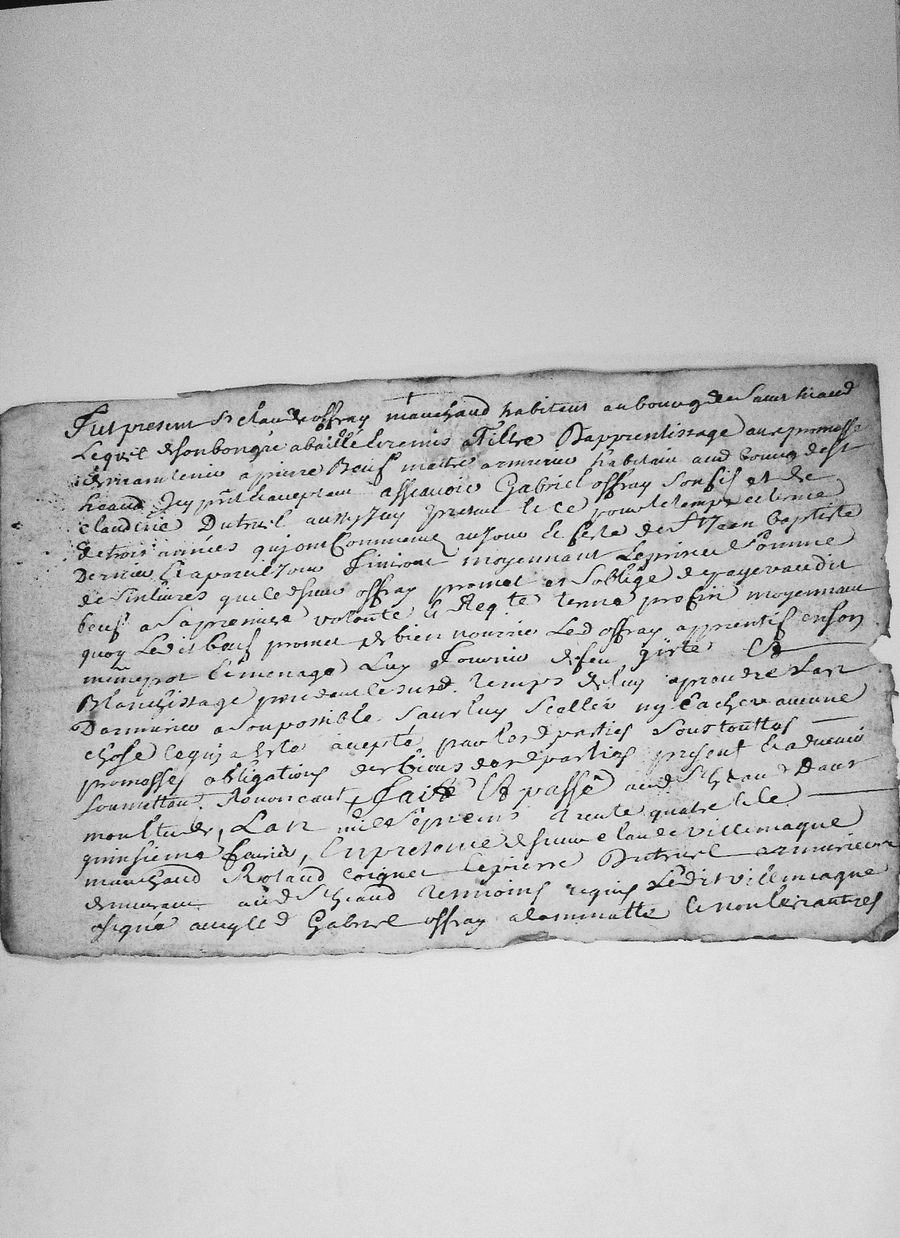 Fut present Sr claude offray marchand habitant au bourg de Saint heand
Lequel de son bon gré a baillé et remis a Tiltre D'apprentissage aux promesse
de maintenir a pierre Bœuf maitre armurier habitant aud bourg de St
heand Icy pnt et acceptant assavoir Gabriel offray son fils et de
claudine Dutreul aussy Icy present et ce pour le temps et terme
de trois années qui ont Commencé au jour et feste de St Jean baptiste
Dernier Et a pareil jour finiront moyennant Le prix et Somme
de livres que led sieur offray promet et s'oblige de payer audit
beuf a sa premiere volonté et Reqte terme prefix moyennant
quoy Ledit bœuf promet de bien nourrir Led offray apprentif en son
mesme pot et menage Luy fournir de feu giste Et
Blanchissage pendant le susd. temps de luy aprendre L'art
D'armurier a son possible Sans luy Sceller ny Cacher aucune
chose Ce qui a été accepté par les dparties Sous touttes
promesses obligations des biens desd parties present Et advenir
Soumettant. Renonceant, Fait Et passé aud St heand Dans
mon Etude, L'an mil sept cens trente quatre et le
quinsieme fevrier, En presence de sieur claude Villemagne
marchand Roland coignet et pierre Dutreul armurier
demeurant aud St heand temoins requis Ledit villemagne
a signé avec led Gabriel offray a la minutte Et non les autres